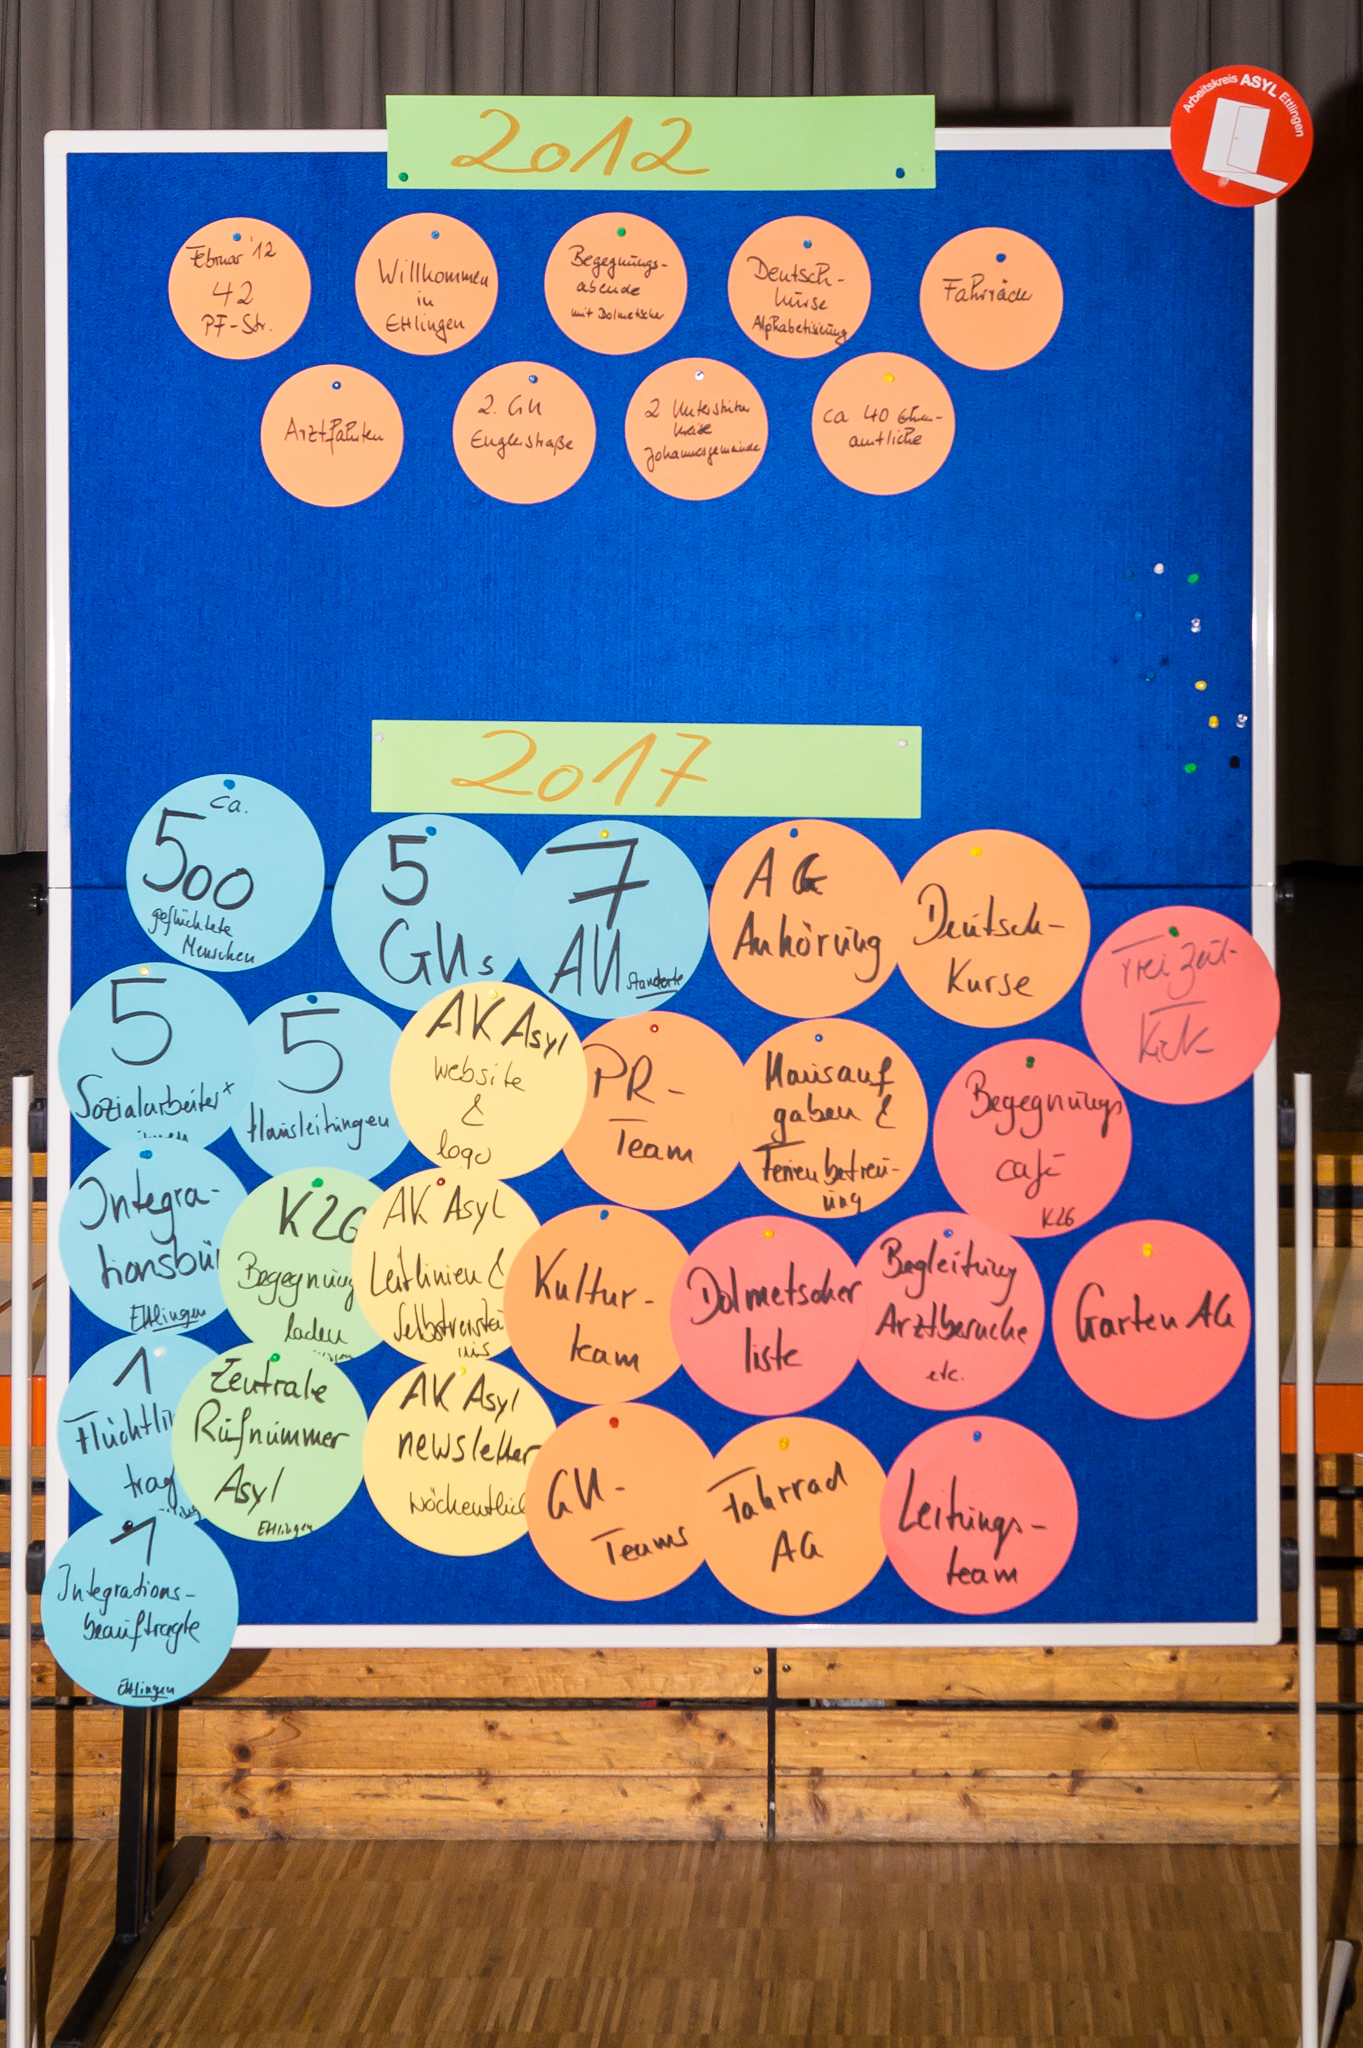 Arbeitskreis ASYL Ettlingen
2012
Februar '12
42
PF-Str.
Willkommen
in
Ettlingen
Begegnungs-
abende
mit Dolmetscher
Deutsch-
kurse
Alphabetisierung
Fahrräder
Arztfahrten
2. GU
Englerstraße
2 Unterstützer
kreise
Johannesgemeinde
ca 40 Ehren-
amtliche
2017
ca.
500
geflüchtete
Menschen
5
GUs
7
AU
Standorte
AG
Anhörung
Deutsch-
Kurse
Freizeit-
Kick
5
Sozialarbeiter*
innen
5
Hausleitungen
AK Asyl
website
&
logo
PR-
Team
Hausauf
gaben &
Ferienbetreu-
ung
Begegnungs
café
K26
Integra-
tionsbü
Ettlingen
K26
Begegnung
laden
AK Asyl
Leitlinien &
Selbstverstä
nis
Kultur-
team
Dolmetscher
liste
Begleitung
Arztbesuche
etc.
Garten AG
1
Flüchtli
trag
Zentrale
Rufnummer
Asyl
Ettlingen
AK Asyl
newsletter
wöchentlich
GU-
Teams
Fahrrad
AG
Leitungs-
team
1
Integrations-
beauftragte
Ettlingen